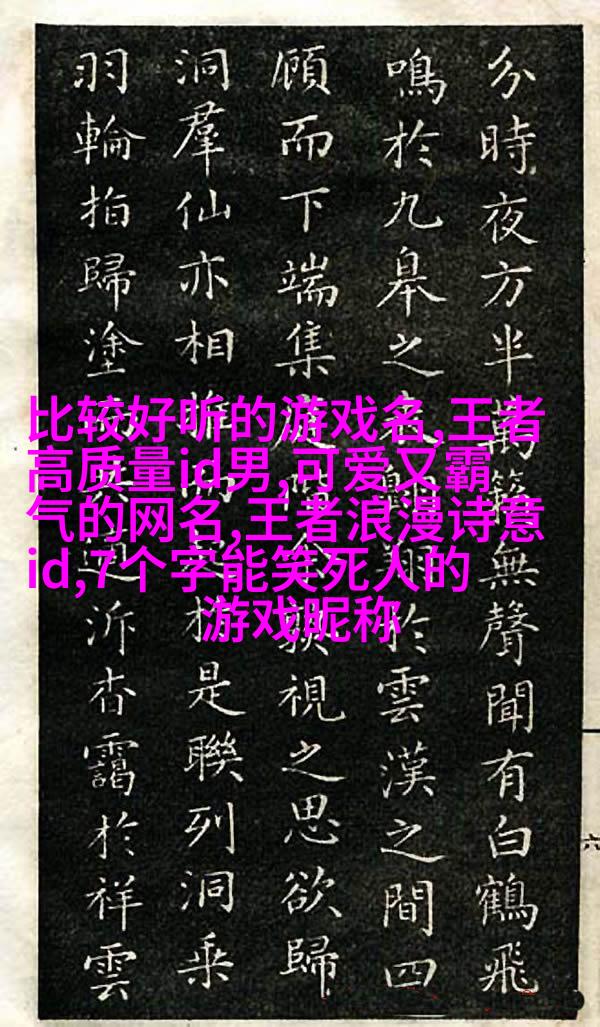 比较好听的游戏名,王者
高质量id男,可爱又霸
气的网名,王者浪漫诗意
id,7个字能笑死人的
游戏昵称
分時夜方半萬籟無聲聞有白鶴飛
鳴於九皋之表翱翔於雲漢之間四
顧而下端集視之思欲歸
洞羣仙亦相是聯列洞乘
羽輪拍歸塗泝杳靄於祥雲
六